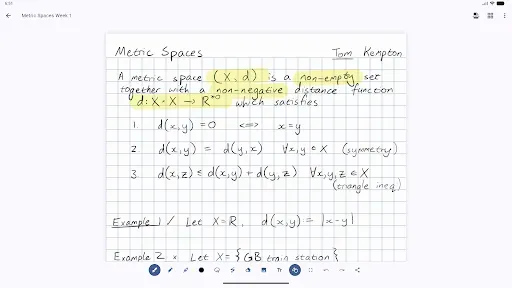 5:51
Metric Spaces Week 1
Metric Spaces Tom Kempton
A metric space (X, d) is a non-empty set
together with a non-negative distance function
d: X × X → R^≥0 which satisfies
1. d(x,y) = 0 <=> x=y
2. d(x,y) = d(y,x) ∀x,y ∈ X (symmetry)
3. d(x,z) ≤ d(x,y) + d(y,z) ∀x,y,z ∈ X
(triangle ineq)
Example 1 / Let X = R, d(x,y) = |x-y|
Example 2 Let X = {GB train station}